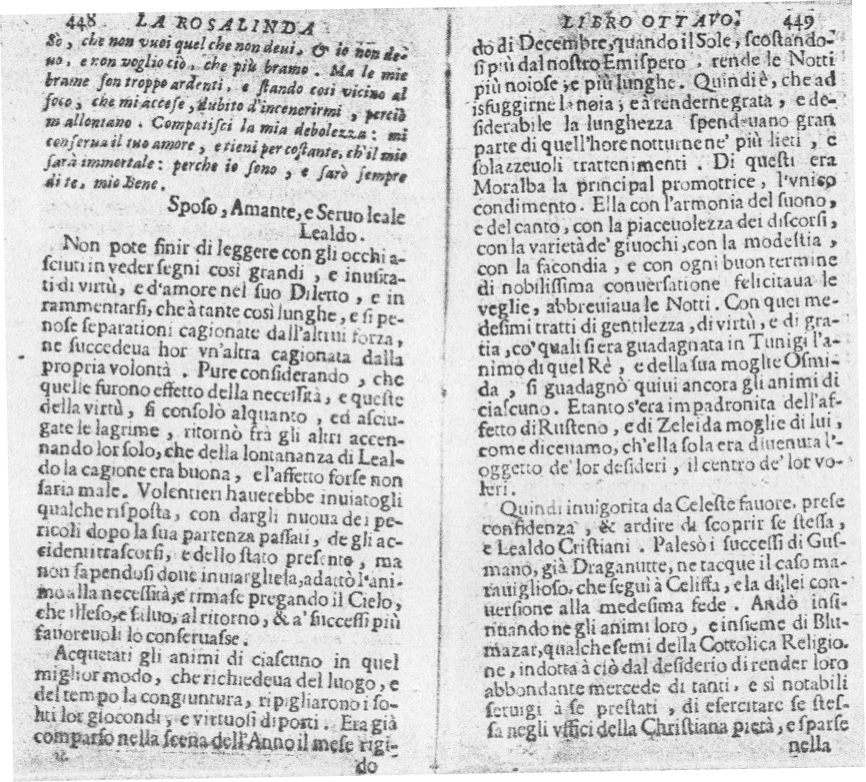 448 LA ROSALINDA
Sò, che non vuoi quel che non deui, & io non de-
uo, e non voglio ciò, che più bramo. Ma le mie
brame son troppo ardenti, e stando così vicino al
foco, che mi accese, dubito d'incenerirmi, perciò
m'allontano. Compatisci la mia debolezza: mi
conserua il tuo amore, e tieni per costante, ch'il mio
sarà immortale: perche io sono, e sarò sempre
di te, mio Bene.
Sposo, Amante, e Seruo leale
Lealdo.
Non pote finir di leggere con gli occhi a-
sciuti in veder segni così grandi, e inusita-
ti di virtù, e d'amore nel suo Diletto, e in
rammentarsi, che à tante così lunghe, e si pe-
nose separationi cagionate dall'altrui forza,
ne succedeua hor vn'altra cagionata dalla
propria volontà. Pure considerando, che
quelle furono effetto della necessità, e queste
della virtù, si consolò alquanto, ed asciu-
gate le lagrime, ritornò frà gli altri accen-
nando lor solo, che della lontananza di Leal-
do la cagione era buona, e l'affetto forse non
saria male. Volentieri hauerebbe inuiatogli
qualche risposta, con dargli nuoua dei pe-
ricoli dopo la sua partenza passati, de gli ac-
cidenti trascorsi, e dello stato presente, ma
non sapendosi doue inuiargliela, adattò l'ani-
mo alla necessità, e rimase pregando il Cielo,
che illeso, e saluo, al ritorno, & a' successi più
fauoreuoli lo conseruasse.
Acquetati gli animi di ciascuno in quel
miglior modo, che richiedeua del luogo, e
del tempo la congiuntura, ripigliarono i so-
liti lor giocondi, e virtuosi diporti. Era già
comparso nella scena dell'Anno il mese rigi-
do
LIBRO OTTAVO. 449
do di Decembre, quando il Sole, scostando-
si più dal nostro Emispero, rende le Notti
più noiose, e più lunghe. Quindi è, che ad
isfuggirne la noia, e à renderne grata, e de-
siderabile la lunghezza spendeuano gran
parte di quell'hore notturne ne' più lieti, e
solazzeuoli trattenimenti. Di questi era
Moralba la principal promotrice, l'vnico
condimento. Ella con l'armonia del suono,
e del canto, con la piaceuolezza dei discorsi,
con la varietà de' giuochi, con la modestia,
con la facondia, e con ogni buon termine
di nobilissima conuersatione felicitaua le
veglie, abbreuiaua le Notti. Con quei me-
desimi tratti di gentilezza, di virtù, e di gra-
tia, co' quali si era guadagnata in Tunigi l'a-
nimo di quel Rè, e della sua moglie Osmi-
da, si guadagnò quiui ancora gli animi di
ciascuno. E tanto s'era impadronita dell'af-
fetto di Rusteno, e di Zeleida moglie di lui,
come diceuamo, ch'ella sola era diuenuta l'-
oggetto de' lor desideri, il centro de' lor vo-
leri.
Quindi inuigorita da Celeste fauore, prese
confidenza, & ardire di scoprir se stessa,
e Lealdo Cristiani. Palesò i successi di Gus-
mano, già Draganutte, ne tacque il caso ma-
rauiglioso, che seguì à Celissa, e la di lei con-
uersione alla medesima fede. Andò insi-
nuando ne gli animi loro, e insieme di Blu-
mazar, qualche semi della Cottolica Religio.
ne, indotta à ciò dal desiderio di render loro
abbondante mercede di tanti, e sì notabili
seruigi à se prestati, di esercitare se stes-
sa negli vffici della Christiana pietà, e sparse
nella